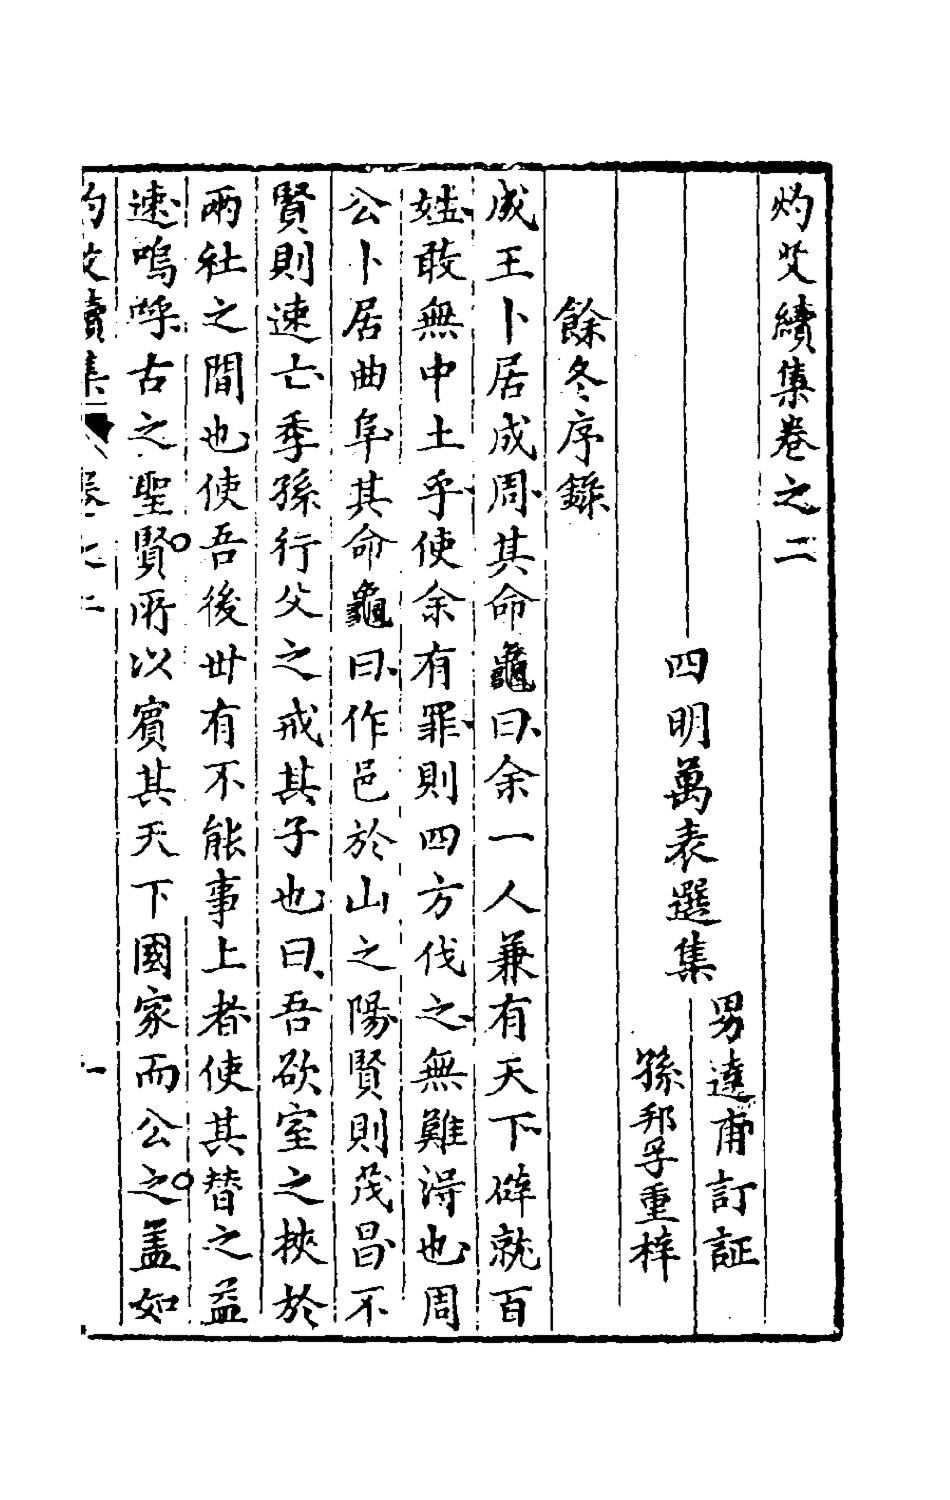 灼艾續集卷之二
四明萬表選集
男達甫訂証
孫邦孚重梓
餘冬序錄
成王卜居成周其命龜曰余一人兼有天下辟就百
姓敢無中土乎使余有罪則四方伐之無難淂也周
公卜居曲阜其命龜曰作邑於山之陽賢則茂昌不
賢則速亡季孫行父之戒其子也曰吾欲室之挾於
兩社之間也使吾後世有不能事上者使其替之益
速嗚呼古之聖賢所以賓其天下國家而公之盖如
灼艾續集 卷之二 一